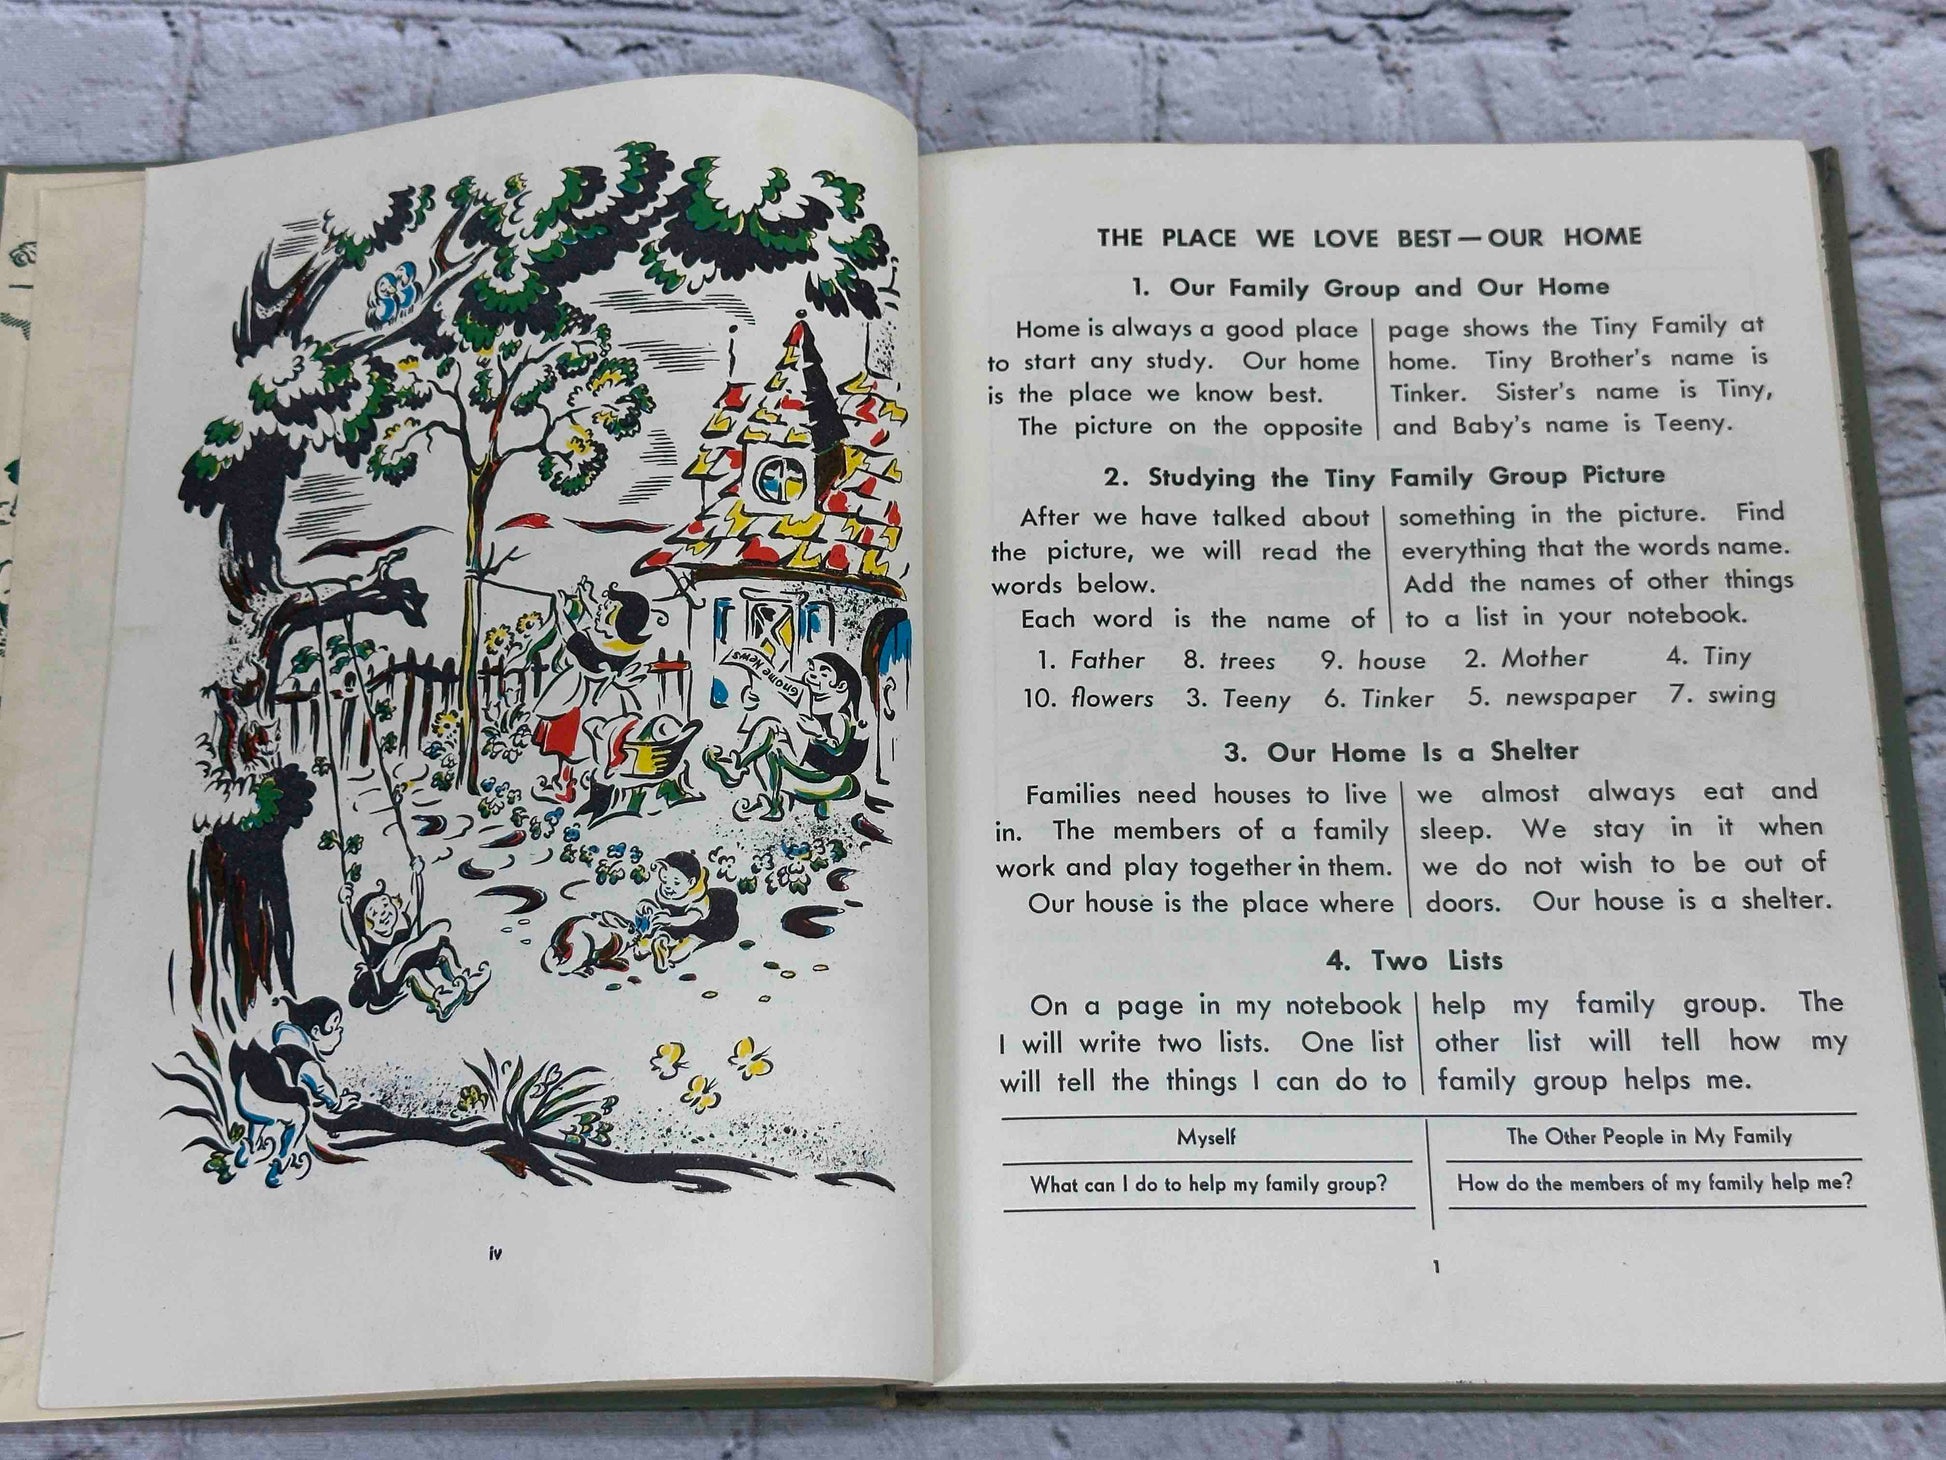 Gnome News
iv
THE PLACE WE LOVE BEST—OUR HOME
1. Our Family Group and Our Home
Home is always a good place
to start any study. Our home
is the place we know best.
The picture on the opposite
page shows the Tiny Family at
home. Tiny Brother's name is
Tinker. Sister's name is Tiny,
and Baby's name is Teeny.
2. Studying the Tiny Family Group Picture
After we have talked about
the picture, we will read the
words below.
Each word is the name of
something in the picture. Find
everything that the words name.
Add the names of other things
to a list in your notebook.
1. Father 8. trees 9. house 2. Mother 4. Tiny
10. flowers 3. Teeny 6. Tinker 5. newspaper 7. swing
3. Our Home Is a Shelter
Families need houses to live
in. The members of a family
work and play together in them.
Our house is the place where
we almost always eat and
sleep. We stay in it when
we do not wish to be out of
doors. Our house is a shelter.
4. Two Lists
On a page in my notebook
I will write two lists. One list
will tell the things I can do to
help my family group. The
other list will tell how my
family group helps me.
Myself
What can I do to help my family group?
The Other People in My Family
How do the members of my family help me?
1